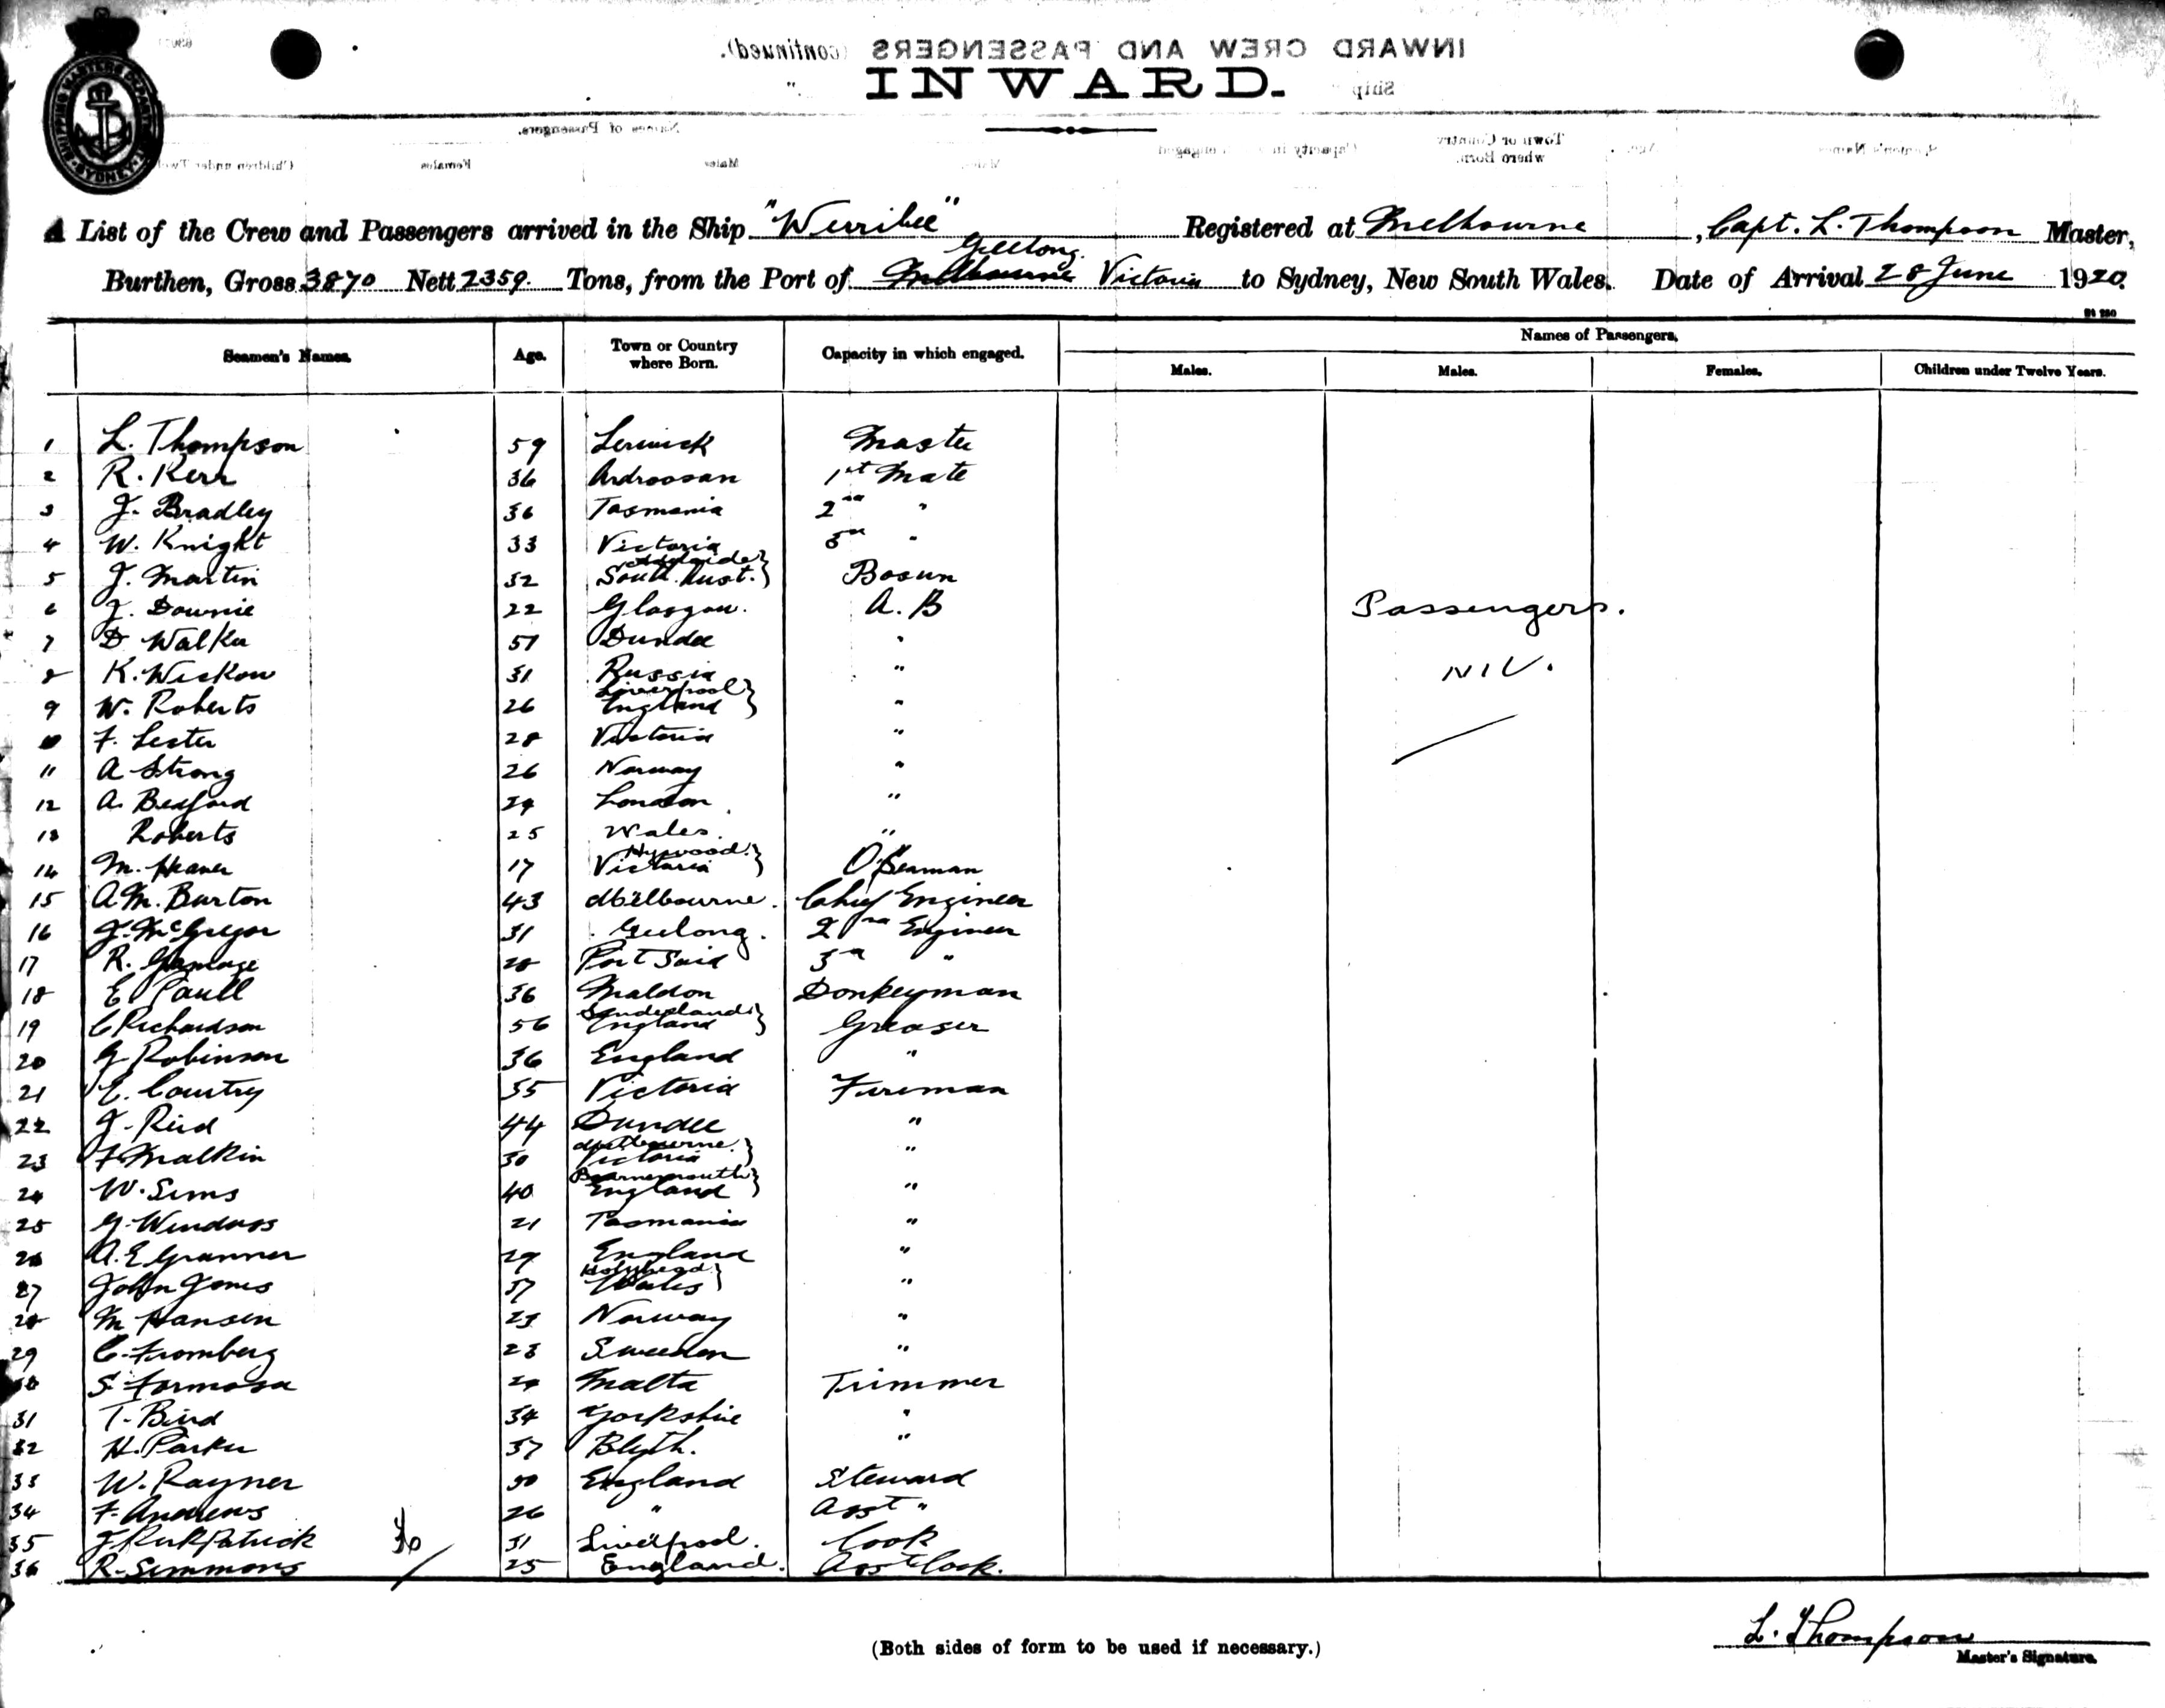 INWARD.
A List of the Crew and Passengers arrived in the Ship "Werribee" Registered at Melbourne, Capt. L. Thompson Master,
Geelong.
Burthen, Gross 3870 Nett 2359. Tons, from the Port of Melbourne Victoria to Sydney, New South Wales. Date of Arrival 28 June 1920.
Names of Passengers.
Seamen's Names. Age. Town or Country where Born. Capacity in which engaged. Males. Males. Females. Children under Twelve Years.
1 L. Thompson 59 Lerwick Master
2 R. Kerr 36 Ardrossan 1st Mate
3 J. Bradley 36 Tasmania 2nd "
4 W. Knight 33 Victoria 3rd "
5 J. Martin 32 Adelaide South Aust. } Bosun
6 J. Downie 22 Glasgow. A. B Passengers.
7 D. Walker 51 Dundee "
8 K. Weskow 31 Russia " NIL.
9 W. Roberts 26 Liverpool England } "
10 F. Lester 28 Victoria "
11 A Strong 26 Norway "
12 A. Bedford 29 London "
13 Roberts 25 Wales. "
14 M. Heaver 17 Victoria } O. Seaman
15 A. M. Burton 43 Melbourne. Chief Engineer
16 J. McGregor 31 Geelong. 2nd Engineer
17 R. Gamage 28 Port Said 3rd "
18 E. Paull 36 Maldon Donkeyman
19 C Richardson 56 Sunderland England } Greaser
20 G Robinson 36 England "
21 E. Courtry 35 Victoria Fireman
22 J. Reid 44 Dundee "
23 F. Malkin 30 Melbourne Victoria } "
24 W. Sims 40 Bournemouth England } "
25 G. Windass 21 Tasmania "
26 A. E Granner 29 England "
27 John Jones 37 Holyhead Wales } "
28 M Hansen 23 Norway "
29 C. Fromberg 23 Sweeden "
30 S. Formosa 29 Malta Trimmer
31 T. Bird 34 Yorkshire "
32 H. Parker 37 Blyth. "
33 W. Rayner 50 England Steward
34 F. Andrews 26 " Asst "
35 J Kirkpatrick 31 Liverpool. Cook
36 R. Simmons 25 England. Asst Cook.
(Both sides of form to be used if necessary.)
L. Thompson
Master's Signature.